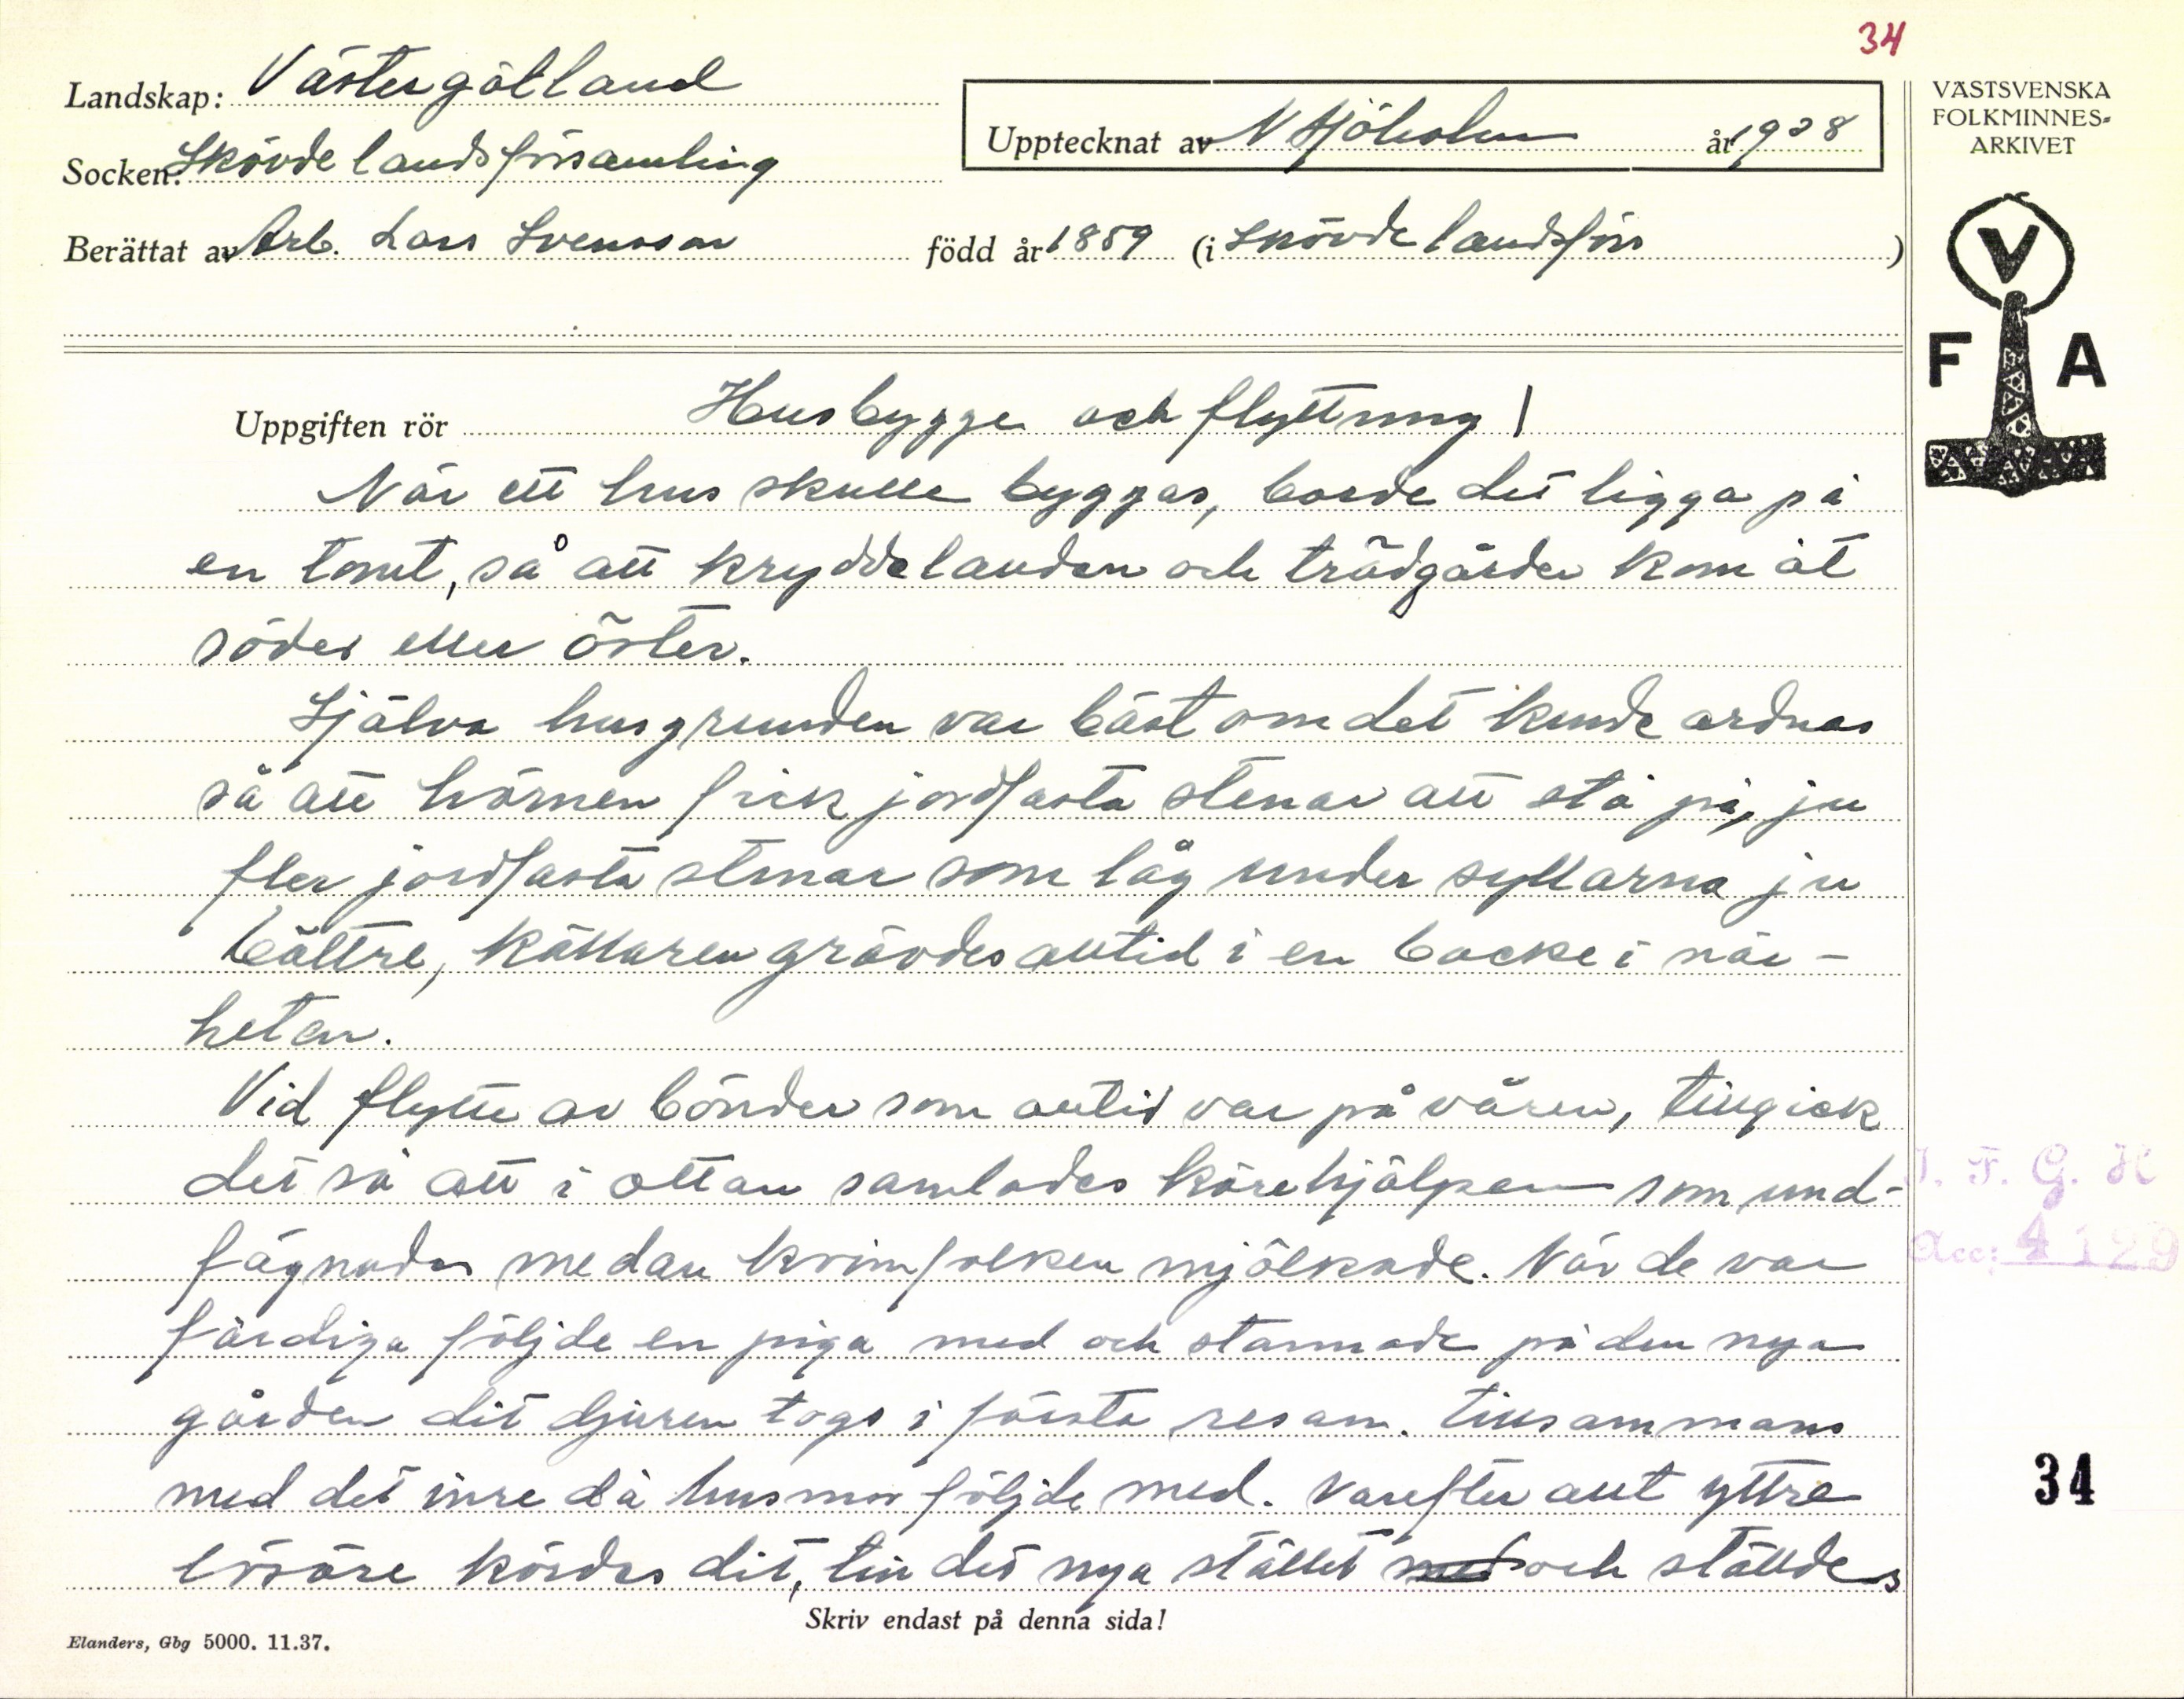 34
Landskap: Västergötland
Socken: Skövde landsförsamling
Upptecknat av N Sjöholm år 1938
Berättat av Arb. Lars Svensson född år 1859 (i Skövde landsförs )
VÄSTSVENSKA
FOLKMINNES-
ARKIVET
V
F A
Uppgiften rör Husbygge och flyttning!
När ett hus skulle byggas, borde det ligga på
en tomt, så att kryddelanden och trädgården kom åt
söder eller öster.
Själva husgrunden var bäst om det kunde ordnas
så att hörnen fick jordfasta stenar att stå på, ju
fler jordfasta stenar som låg under syllarna ju
bättre, källaren grävdes alltid i en backe i när-
heten.
Vid flytte av bönder som alltid var på våren, tillgick
det så att i ottan samlades körehjälpen som und-
fägnades medan kvinnfolken mjölkade. När de var
färdiga följde en piga med och stannade på den nya
gården dit djuren togs i första resan. tillsammans
med det inre då husmor följde med. Varefter allt yttre
lösöre kördes dit, till det nya stället med och ställdes
Skriv endast på denna sida!
Elanders, Gbg 5000. 11.37.
I. F. G. H
Acc: 4129
34